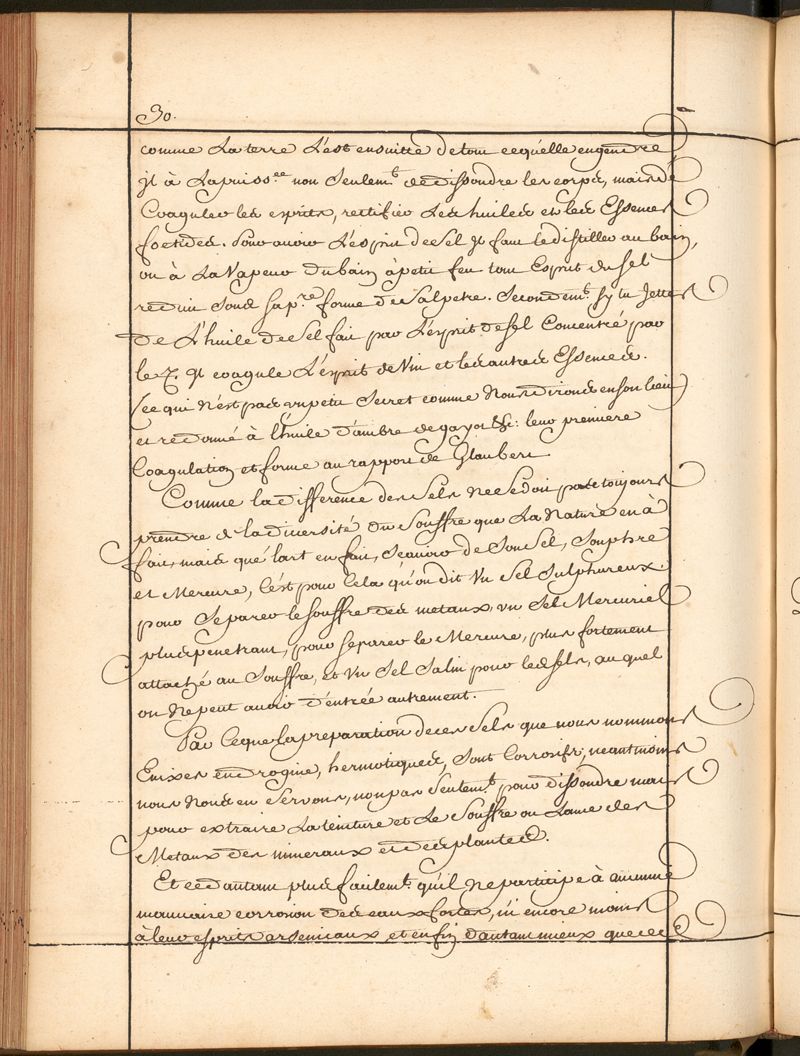 30.
comme La terre L'est ensuitte de tout ce qu'elle engendre
jl à La puiss.ce non seulem.t de dissoudre les corps, mais de
Coaguler les esprits, rectifier Les huiles et les Essences
foetides. Pour avoir L'esprit de Sel jl faut le distiller au bain,
ou à La Vapeur du bain à petit feu tout Esprit de sel
reduit sous sa p.re forme de Salpetre. Secondem.t sy tu Jettes
De L'huile de Sel fait par L'esprit de sel Concentré par
le jl coagule L'esprit de Vin et les autres Essences.
(ce qui n'est pas un petit Secret comme Nous dirons en son lieu)
et redonné à l'huile d'ambre de gayot &c: leur premiere
Coagulation et forme au rapport de Glauber.
Comme la difference des Sels ne se doit pas toujours
prendre de la diversité du Souffre que La Nature en à
fait, mais que l'art en fait, Scavoir de Son Sel, Souphre
et Mercure, C'est pour Cela qu'on dit Un Sel Sulphureux.
pour Separer le souffre des metaux, un Sel Mercuriel
plus penetrant, pour separer le Mercure, plus fortement
attaché au Souffre, et Un Sel Salin pour les sels, auquel
on ne peut avoir d'entrée autrement.
Par Ce que la preparation de ces Sels que nous nommons
Enixes androgine, hermotiques, sont Corrosifs, neantmoins
nous Nous en Servons, non pas Seulem.t pour dissoudre mais
pour extraire La teinture et Le Souffre ou L'ame des
Metaux des mineraux et des plantes.
Et ce d'autant plus facilem.t qu'il ne partitipe à aucune
mauvaise corrosion des eaux fortes, ni encore moins
à leur esprits arsenicaux, et enfin d'autant mieux que ces